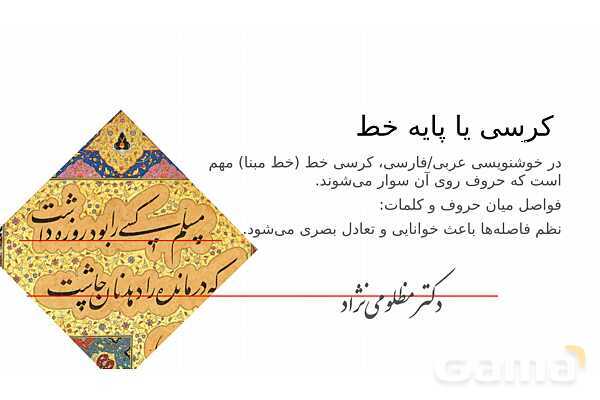 کرسی یا پایه خط
در خوشنویسی عربی/فارسی، کرسی خط (خط مبنا) مهم
است که حروف روی آن سوار می‌شوند.
فواصل میان حروف و کلمات:
نظم فاصله‌ها باعث خوانایی و تعادل بصری می‌شود.
مسلم کسی را بود روزه داشت
که درمانده را دهد نان چاشت
دکتر مظلومی نژاد
Gama